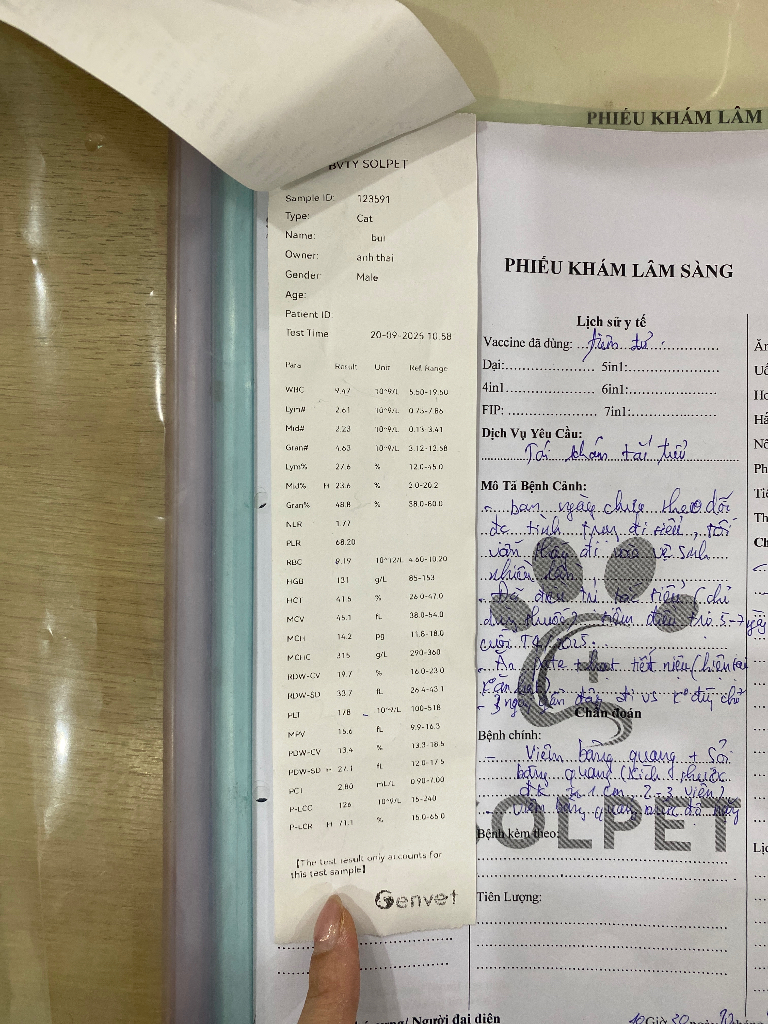 PHIẾU KHÁM LÂM
BVTY SOLPET
Sample ID: 123591
Type: Cat
Name: bui
Owner: anh thai
Gender: Male
Age:
Patient ID:
Test Time 20-09-2025 10:58
Para Result Unit Ref. Range
WBC 9.47 10^9/L 5.50-19.50
Lym# 2.61 10^9/L 0.73-7.86
Mid# 2.23 10^9/L 0.13-3.41
Gran# 4.63 10^9/L 3.12-12.58
Lym% 27.6 % 12.0-45.0
Mid% H 23.6 % 2.0-20.2
Gran% 48.8 % 38.0-60.0
NLR 1.77
PLR 68.20
RBC 9.19 10^12/L 4.60-10.20
HGB 131 g/L 85-153
HCT 41.5 % 26.0-47.0
MCV 45.1 fL 38.0-54.0
MCH 14.2 pg 11.8-18.0
MCHC 315 g/L 290-360
RDW-CV 19.7 % 16.0-23.0
RDW-SD 33.7 fL 26.4-43.1
PLT 178 10^9/L 100-518
MPV 15.6 fL 9.9-16.3
PDW-CV 13.4 % 13.3-18.5
PDW-SD 27.1 fl 12.0-17.5
PCT 2.80 mL/L 0.90-7.00
P-LCC 126 10^9/L 15-240
P-LCR H 71.1 % 15.0-65.0
【The test result only accounts for
this test sample】
Genvet
PHIẾU KHÁM LÂM SÀNG
Lịch sử y tế
Vaccine đã dùng:
Dại: 5in1:
4in1 6in1:
FIP: 7in1:
Dịch Vụ Yêu Cầu:
Tái khám tắc tiểu
Mô Tả Bệnh Cảnh:
- ban ngày chưa theo dõi
đc tình trạng đi tiểu, tối
vẫn thấy đi vệ sinh
nhiều lần,
- Đã điều trị tắc tiểu (chỉ
dùng thuốc tiêm điều trị 5-7 ngày
cuối T4/2025.
- Ăn pate tiết niệu (hiện tại
- 3 ngày gần đây đi vs
Chẩn đoán
Bệnh chính:
- Viêm bàng quang + Sỏi
bàng quang (kích thước
1cm 2-3 viên)
Bệnh kèm theo:
SOLPET
Tiên Lượng:
Người đại diện